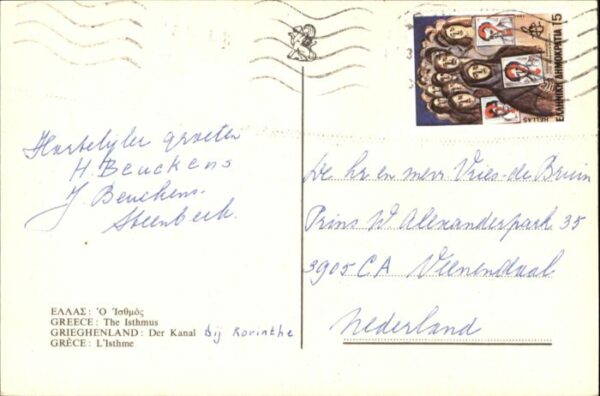 Hartelijke groeten
H. Beuckens
J. Beuckens-
Steenbeek.
ΕΛΛΑΣ: Ὁ Ἰσθμός
GREECE: The Isthmus
GRIEGHENLAND: Der Kanal bij Korinthe
GRÈCE: L'Isthme
ΕΛΛΗΝΙΚΗ ΔΗΜΟΚΡΑΤΙΑ 15
HELLAS
De hr en mevr Vries-de Bruin
Prins W. Alexanderpark 35
3905 CA Veenendaal
Nederland